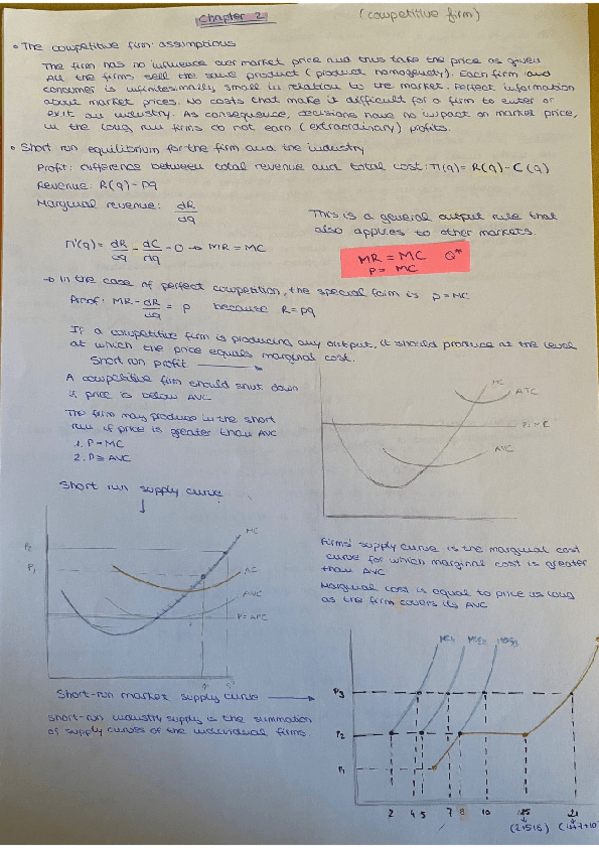 Chapter 2
(competitive firm)
• The competitive firm: assumptions
The firm has no influence over market price and thus take the price as given
All the firms sell the same product (product homogeneity). Each firm and
consumer is infinitesimally small in relation to the market. Perfect information
about market prices. No costs that make it difficult for a firm to enter or
exit an industry. As consequence, decisions have no impact on market price,
in the long run firms do not earn (extraordinary) profits.
• Short run equilibrium for the firm and the industry
Profit: difference between total revenue and total cost: Π(q) = R(q) - C(q)
Revenue: R(q) - pq
Marginal revenue: dR/dq
This is a general output rule that
also applies to other markets.
Π'(q) = dR/dq - dC/dq = 0 → MR = MC
MR = MC Q*
P = MC
→ In the case of perfect competition, the special form is p = MC
Proof: MR = dR/dq = p because R = pq
If a competitive firm is producing any output, it should produce at the level
at which the price equals marginal cost.
Short run profit
A competitive firm should shut down
if price is below AVC
The firm may produce in the short
run if price is greater than AVC
1. P = MC
2. P ≥ AVC
MC
ATC
AVC
Short run supply curve
Firms' supply curve is the marginal cost
curve for which marginal cost is greater
than AVC
Marginal cost is equal to price as long
as the firm covers its AVC
P2
P1
MC
AC
AVC
Short-run market supply curve
Short-run industry supply is the summation
of supply curves of the individual firms.
P3
P2
P1
2 4 5 7 8 10 15 21
(2+5+8) (4+7+10)